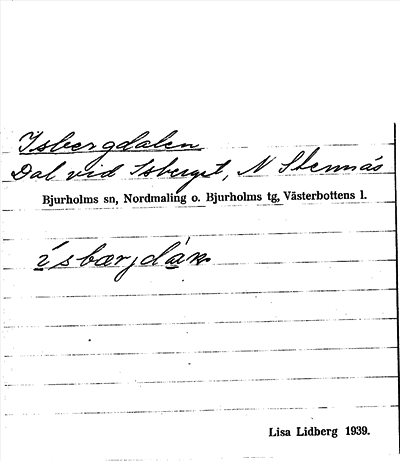 Isbergdalen
Dal vid Isberget, N Stennäs
Bjurholms sn, Nordmaling o. Bjurholms tg, Västerbottens l.
ísbærjdán
Lisa Lidberg 1939.